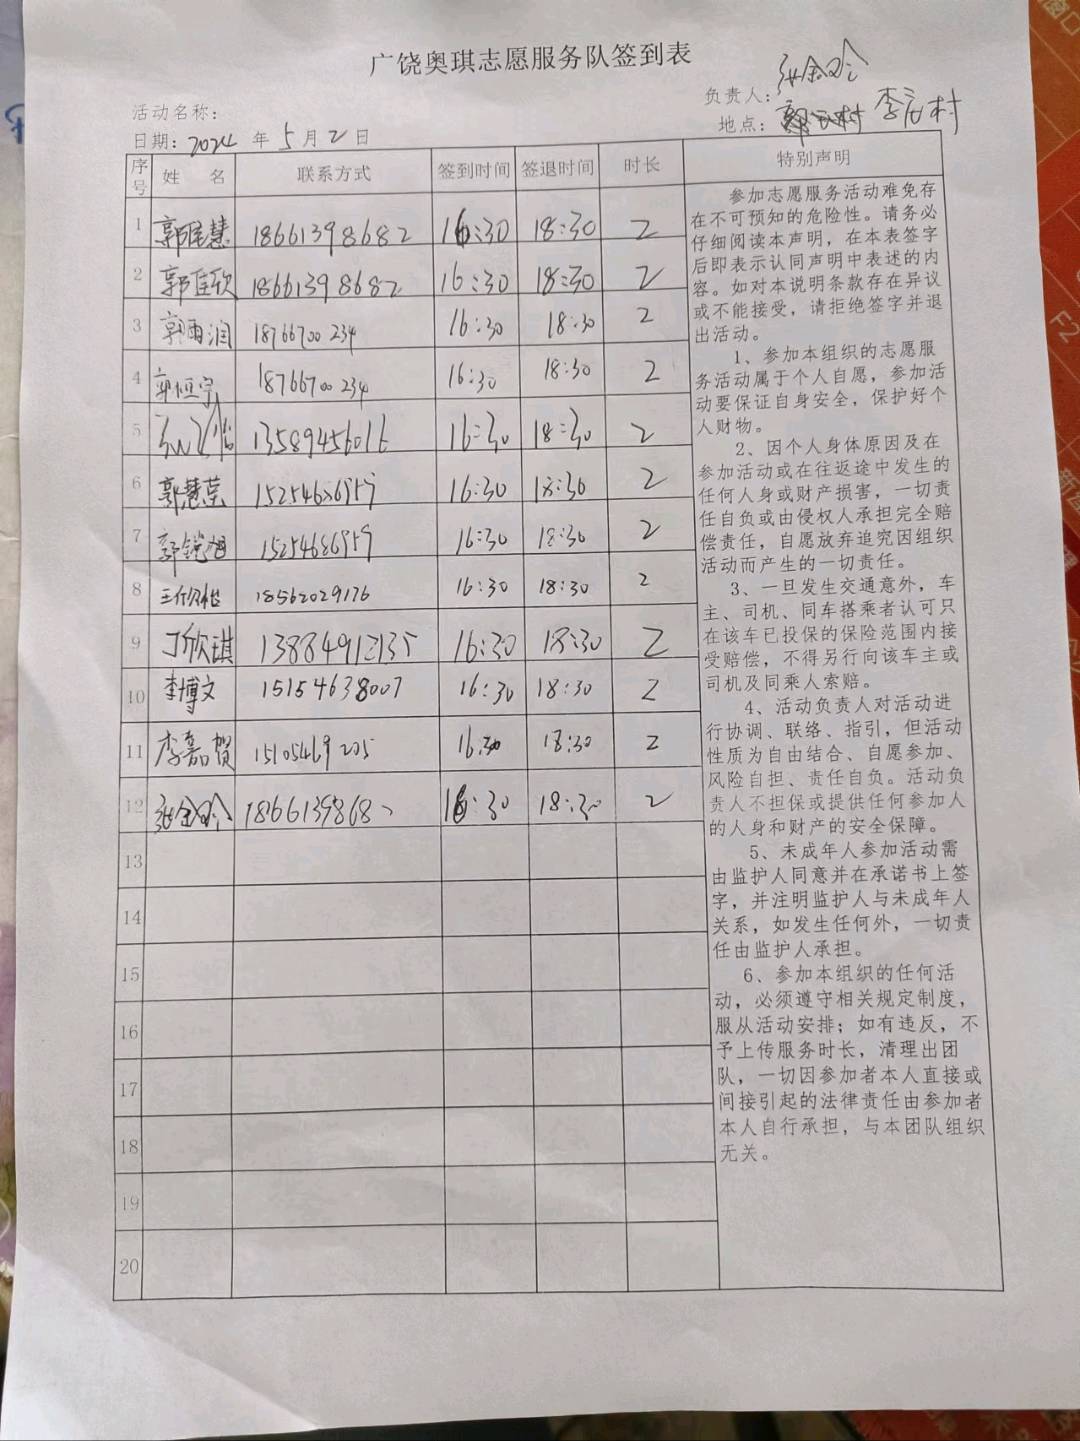 广饶奥琪志愿服务队签到表
活动名称： 负责人：张金玲
日期：2024 年 5 月 2 日 地点： 李 村
序号 姓 名 联系方式 签到时间 签退时间 时长 特别声明
1 郭佳慧 18661398682 16:30 18:30 2
2 郭佳欣 18661398682 16:30 18:30 2
3 郭雨润 18766700234 16:30 18:30 2
4 郭恒宇 18766700234 16:30 18:30 2
5 13589456016 16:30 18:30 2
6 郭慧荣 15254686959 16:30 18:30 2
7 郭锐旭 15254686959 16:30 18:30 2
8 18562029176 16:30 18:30 2
9 丁欣琪 13884912135 16:30 18:30 2
10 李博文 15154638007 16:30 18:30 2
11 李嘉贺 15105469205 16:30 18:30 2
12 张金玲 18661398682 16:30 18:30 2
13
14
15
16
17
18
19
20
参加志愿服务活动难免存
在不可预知的危险性。请务必
仔细阅读本声明，在本表签字
后即表示认同声明中表述的内
容。如对本说明条款存在异议
或不能接受，请拒绝签字并退
出活动。
1、参加本组织的志愿服
务活动属于个人自愿，参加活
动要保证自身安全，保护好个
人财物。
2、因个人身体原因及在
参加活动或在往返途中发生的
任何人身或财产损害，一切责
任自负或由侵权人承担完全赔
偿责任，自愿放弃追究因组织
活动而产生的一切责任。
3、一旦发生交通意外，车
主、司机、同车搭乘者认可只
在该车已投保的保险范围内接
受赔偿，不得另行向该车主或
司机及同乘人索赔。
4、活动负责人对活动进
行协调、联络、指引，但活动
性质为自由结合、自愿参加、
风险自担、责任自负。活动负
责人不担保或提供任何参加人
的人身和财产的安全保障。
5、未成年人参加活动需
由监护人同意并在承诺书上签
字，并注明监护人与未成年人
关系，如发生任何外，一切责
任由监护人承担。
6、参加本组织的任何活
动，必须遵守相关规定制度，
服从活动安排；如有违反，不
予上传服务时长，清理出团
队，一切因参加者本人直接或
间接引起的法律责任由参加者
本人自行承担，与本团队组织
无关。
窗口
F2